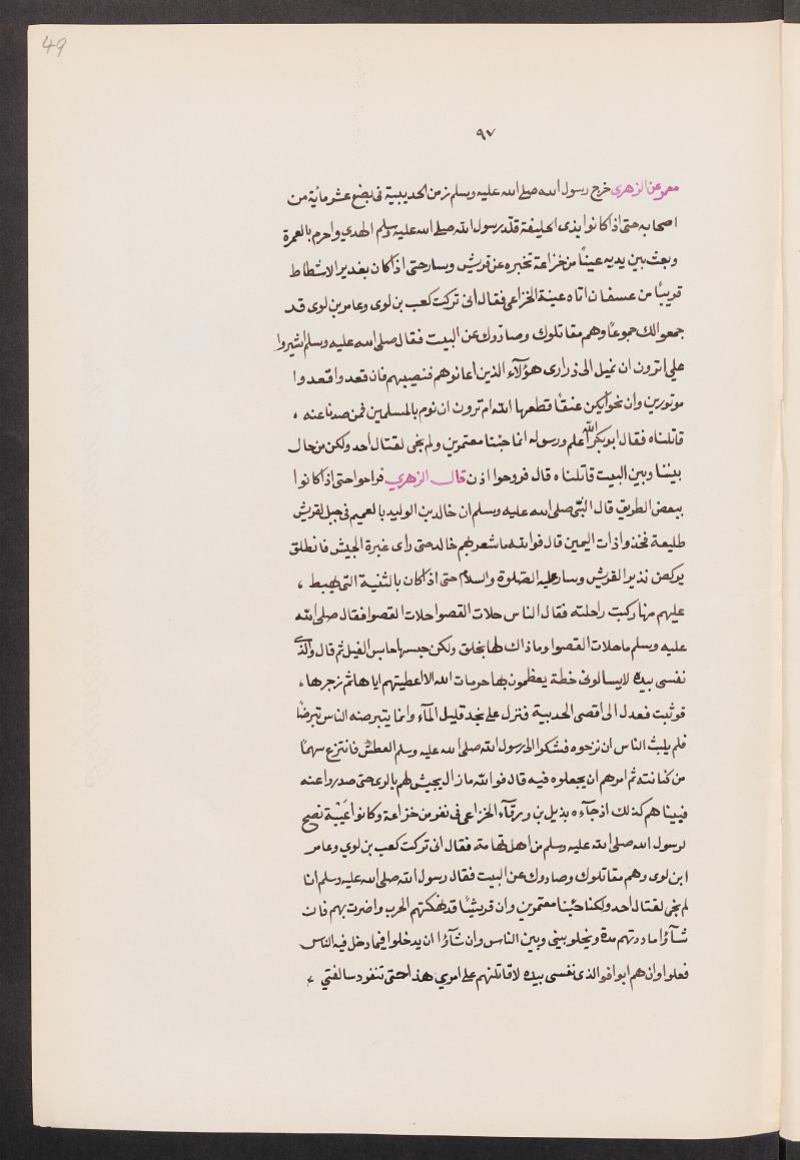 49
٩٧
معمر عن الزهري خرج رسول الله صلى الله عليه وسلم زمن الحديبية فى بضع عشر مائة من
اصحابه حتى اذا كانوا بذى الحليفة قلد رسول الله صلى الله عليه وسلم الهدي واحرم بالعمرة
وبعث بين يديه عينًا من خزاعة تخبره عن قريش وسار حتى اذا كان بغدير الاشطاط
قريبًا من عسفان اتاه عينة الخزاعى فقال انى تركت كعب بن لوى وعامر بن لوى قد
جمعوا لك جموعًا وهم مقاتلوك وصادّوك عن البيت فقال صلى الله عليه وسلم اشيروا
على اترون ان نميل الى ذرارى هؤلآء الذين اعانوهم فنصيبهم فان قعدوا قعدوا
موتورين وان نجوا يكن عنقًا قطعها الله ام ترون ان نوم بالمسلمين فمن صدنا عنه ،
قاتلناه فقال ابو بكر الله اعلم ورسوله انما جئنا معتمرين ولم نجى لقتال احد ولكن من حال
بيننا وبين البيت قاتلناه قال فروحوا اذن قال الزهري فراحوا حتى اذا كانوا
ببعض الطريق قال النبى صلى الله عليه وسلم ان خالد بن الوليد بالغميم فى خيل لقريش
طليعة فخذوا ذات اليمين قال فوالله ما شعر بهم خالد حتى راى غبرة الجيش فانطلق
يركض نذير القريش وسار عليه الصلوة والسلام حتى اذا كان بالثنية التى يهبط ،
عليهم منها ركبت راحلته فقال الناس حلات القصوا حلات القصوا فقال صلى الله
عليه وسلم ما حلات القصوا وما ذاك لها بخلق ولكن حبسها حابس الفيل ثم قال والذى
نفسى بيده لا يسالونى خطة يعظمون بها حرمات الله الا اعطيتهم اياها ثم زجرها ،
فوثبت فعدل الى اقصى الحديبية فنزل على ثمد قليل المآء وانما يتبرضه الناس تبرضًا
فلم يلبث الناس ان نزحوه فشكوا الى رسول الله صلى الله عليه وسلم العطش فانتزع سهمًا
من كنانته ثم امرهم ان يجعلوه فيه قال فوالله ما زال يجيش لهم بالرى حتى صدروا عنه
فبينا هم كذلك اذ جآءه بذيل بن ورقآء الخزاعى فى نفر من خزاعة وكانوا عَيْبة نصح
لرسول الله صلى الله عليه وسلم من اهل تهامة فقال انى تركت كعب بن لوي وعامر
ابن لوى وهم مقاتلوك وصادوك عن البيت فقال رسول الله صلى الله عليه وسلم انا
لم نجى لقتال احد ولكنا جئنا معتمرين وان قريشًا قد نهكتهم الحرب واضرت بهم فان
شآؤا ماددتهم مدة ويخلو بينى وبين الناس وان شآؤا ان يدخلوا فيما دخل فيه الناس
فعلوا وان هم ابوا فوالذى نفسى بيده لاقاتلنهم على امري هذا حتى تنفرد سالفتي ،